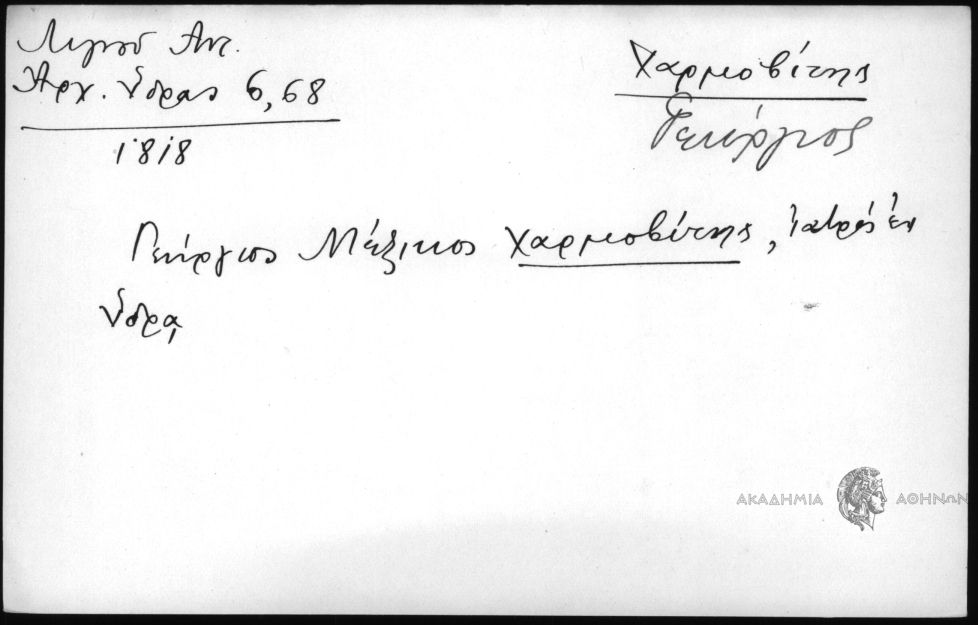 Λιγνού Αντ.
Αρχ. Ύδρας 6, 68
1818
Χαρμοβίτης
Γεώργιος
Γεώργιος Μέξικος Χαρμοβίτης, ἰατρός ἐν
Ύδρᾳ
ΑΚΑΔΗΜΙΑ ΑΘΗΝΩΝ